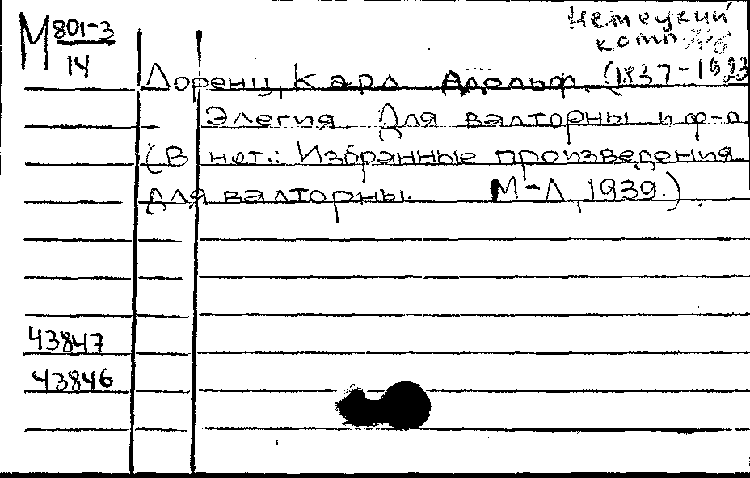 М 801-3
14
Немецкий
комп.
Лоренц, Карл Адольф. (1837-1923
Элегия. Для валторны и ф-п.
(В нот.: Избранные произведения
для валторны. М-Л, 1939.).
43847
43846